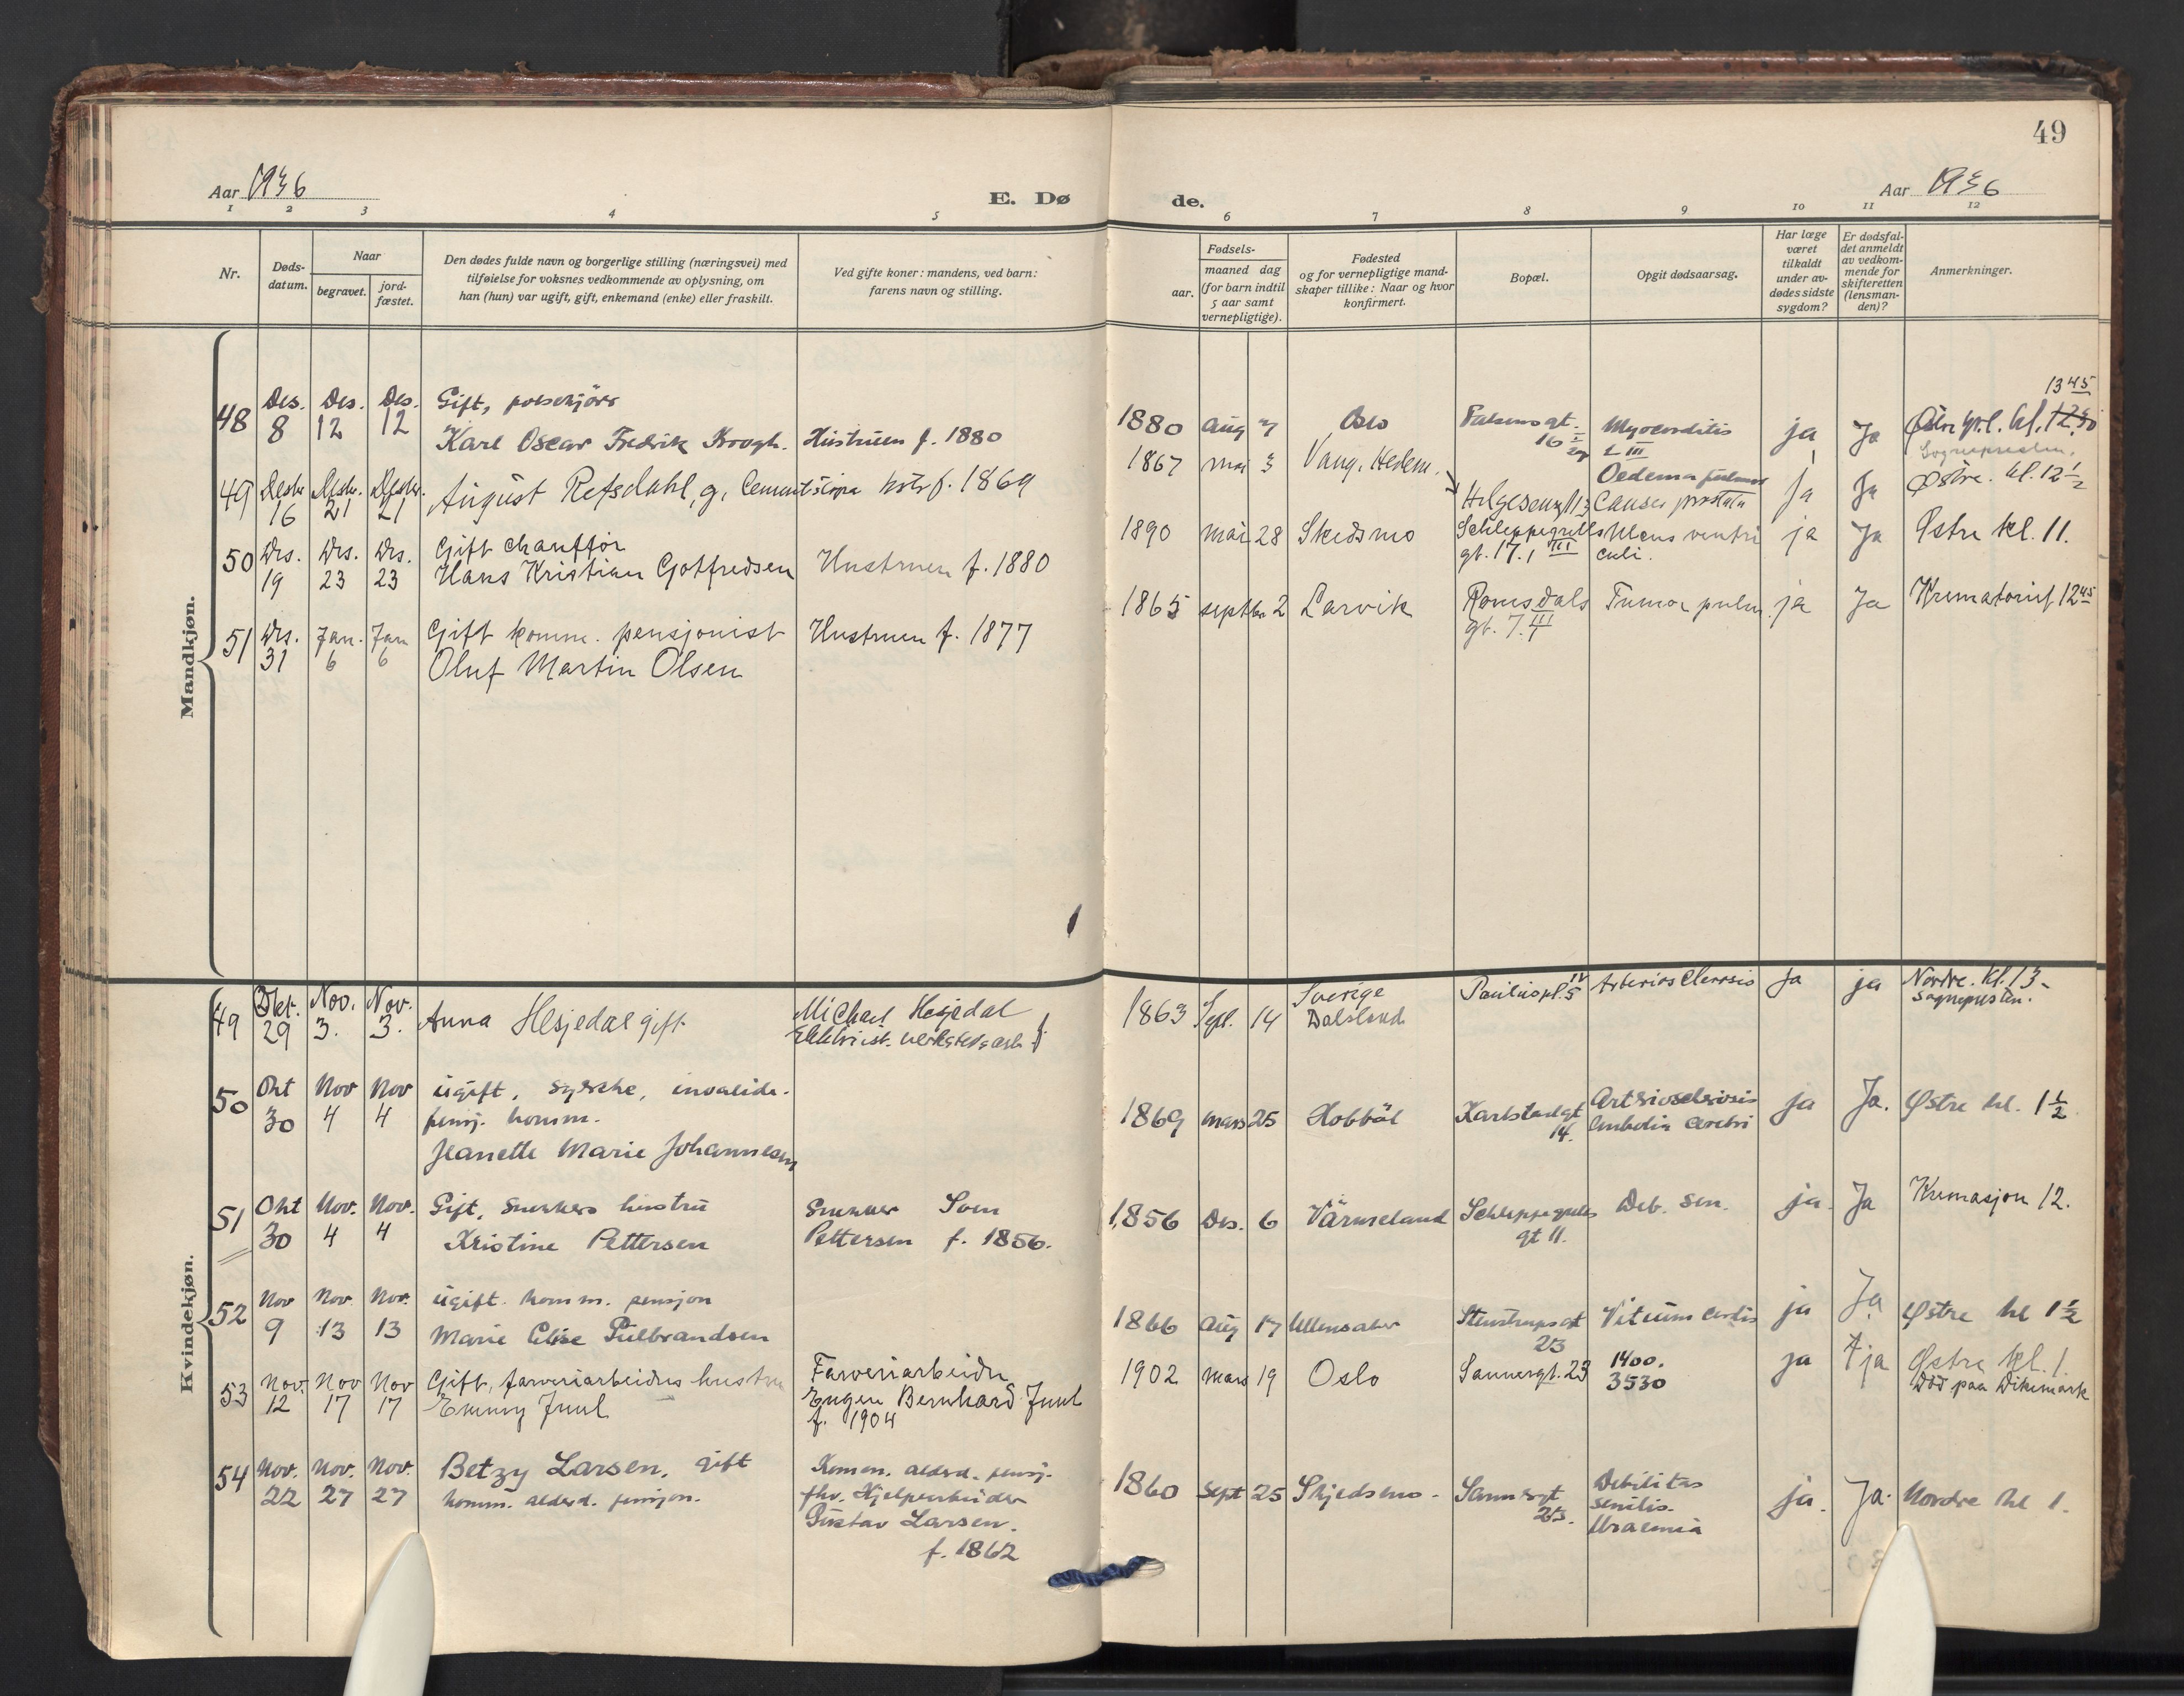 49
Aar 1936
E. Dø
de.
Aar 1936
1 2 3 4 5 6 7 8 9 10 11 12
Nr.
Døds-
datum.
Naar
begravet.
jord-
fæstet.
Den dødes fulde navn og borgerlige stilling (næringsvei) med
tilføielse for voksnes vedkommende av oplysning, om
han (hun) var ugift, gift, enkemand (enke) eller fraskilt.
Ved gifte koner: mandens, ved barn:
farens navn og stilling.
Fødsels-
aar.
maaned dag
(for barn indtil
5 aar samt
vernepligtige).
Fødested
og for vernepligtige mand-
skaper tillike: Naar og hvor
konfirmert.
Bopæl.
Opgit dødsaarsag.
Har læge
været
tilkaldt
under av-
dødes sidste
sygdom?
Er dødsfal-
det anmeldt
av vedkom-
mende for
skifteretten
(lensman-
den)?
Anmerkninger.
Mandkjøn.
48
Des. 8
Des. 12
Des. 12
Gift,
Karl Oscar Fredrik Krogh.
Hustruen f. 1880
1880 Aug 7
Oslo
16
Myocarditis
ja
Ja
Østre kl. 12.30
13 45
Sognepresten.
49
Desbr. 16
Desbr. 21
Desbr. 21
August Refsdahl, g, Cement hstr f. 1869
1867 mai 3
Vang, Hedem.
Helgesensgt 13
Oedema pulmon
Cancer prostata
Ja
Ja
Østre. kl. 12 1/2
50
Des. 19
Des. 23
Des. 23
Gift chauffør
Hans Kristian Gotfredsen
Hustruen f. 1880
1890 mai 28
Skedsmo
Schleppegrells
gt. 17. III
Ulcus ventri
culi.
ja
Ja
Østre kl. 11.
51
Des. 31
Jan. 6
Jan 6
Gift komm. pensjonist
Oluf Martin Olsen
Hustruen f. 1877
1865 septbr 2
Larvik
Romsdals
gt. 7. III
Tumor pulm.
ja
Ja
Krematoriet 12 45
Kvindekjøn.
49
Okt. 29
Nov. 3.
Nov. 3.
Anna Hesjedal gift
Michael Hesjedal
1863 Sept. 14
Sverige
Dalsland
Paulus pl. 5 IV
Arteriosclerosis
Ja
ja
Nordre. kl. 13-
Sognepresten.
50
Okt 30
Nov 4
Nov 4
ugift, syerske, invalide.
pensj. komm.
Jeanette Marie Johannesen
1869 mars 25
Hobböl
Karlstadgt
14.
Artriosclerosis
Embolia cerebri
ja
Ja.
Østre kl. 1 1/2
51
Okt 30
Nov. 4
Nov. 4
Gift, Snekkers hustru
Kristine Pettersen
Snekker Sven
Pettersen f. 1856.
1856 Des. 6
Värmeland
Schleppegrells
gt 11.
Deb. sen.
ja.
Ja
Kremasjon 12.
52
Nov 9
Nov. 13
Nov. 13
ugift. komm. pensjon
Marie Elise Gulbrandsen
1866 Aug 17
Ullensaker
Steenstrupsgt
23
Vitium cordis
ja
Ja
Østre kl 1 1/2
53
Nov. 12
Nov 17
Nov 17
Gift, farveriarbeiders hustru
Emmy Juul
Farveriarbeider
Eugen Bernhard Juul
f. 1904
1902 mars 19
Oslo
Sannergt. 23
1400.
3530
ja
ja
Østre kl. 1.
Död paa Dikemark
54
Nov. 22
Nov. 27
Nov. 27
Betzy Larsen, gift
komm. alderd. pensjon.
Komm. alderd. pensj.
fhv. Hjelpearbeider
Gustav Larsen.
f. 1862
1860 Sept 25
Skjedsmo -
Sannergt
25.
Debilitas
senilis.
Uraemia
ja.
Ja.
Nordre kl 1.